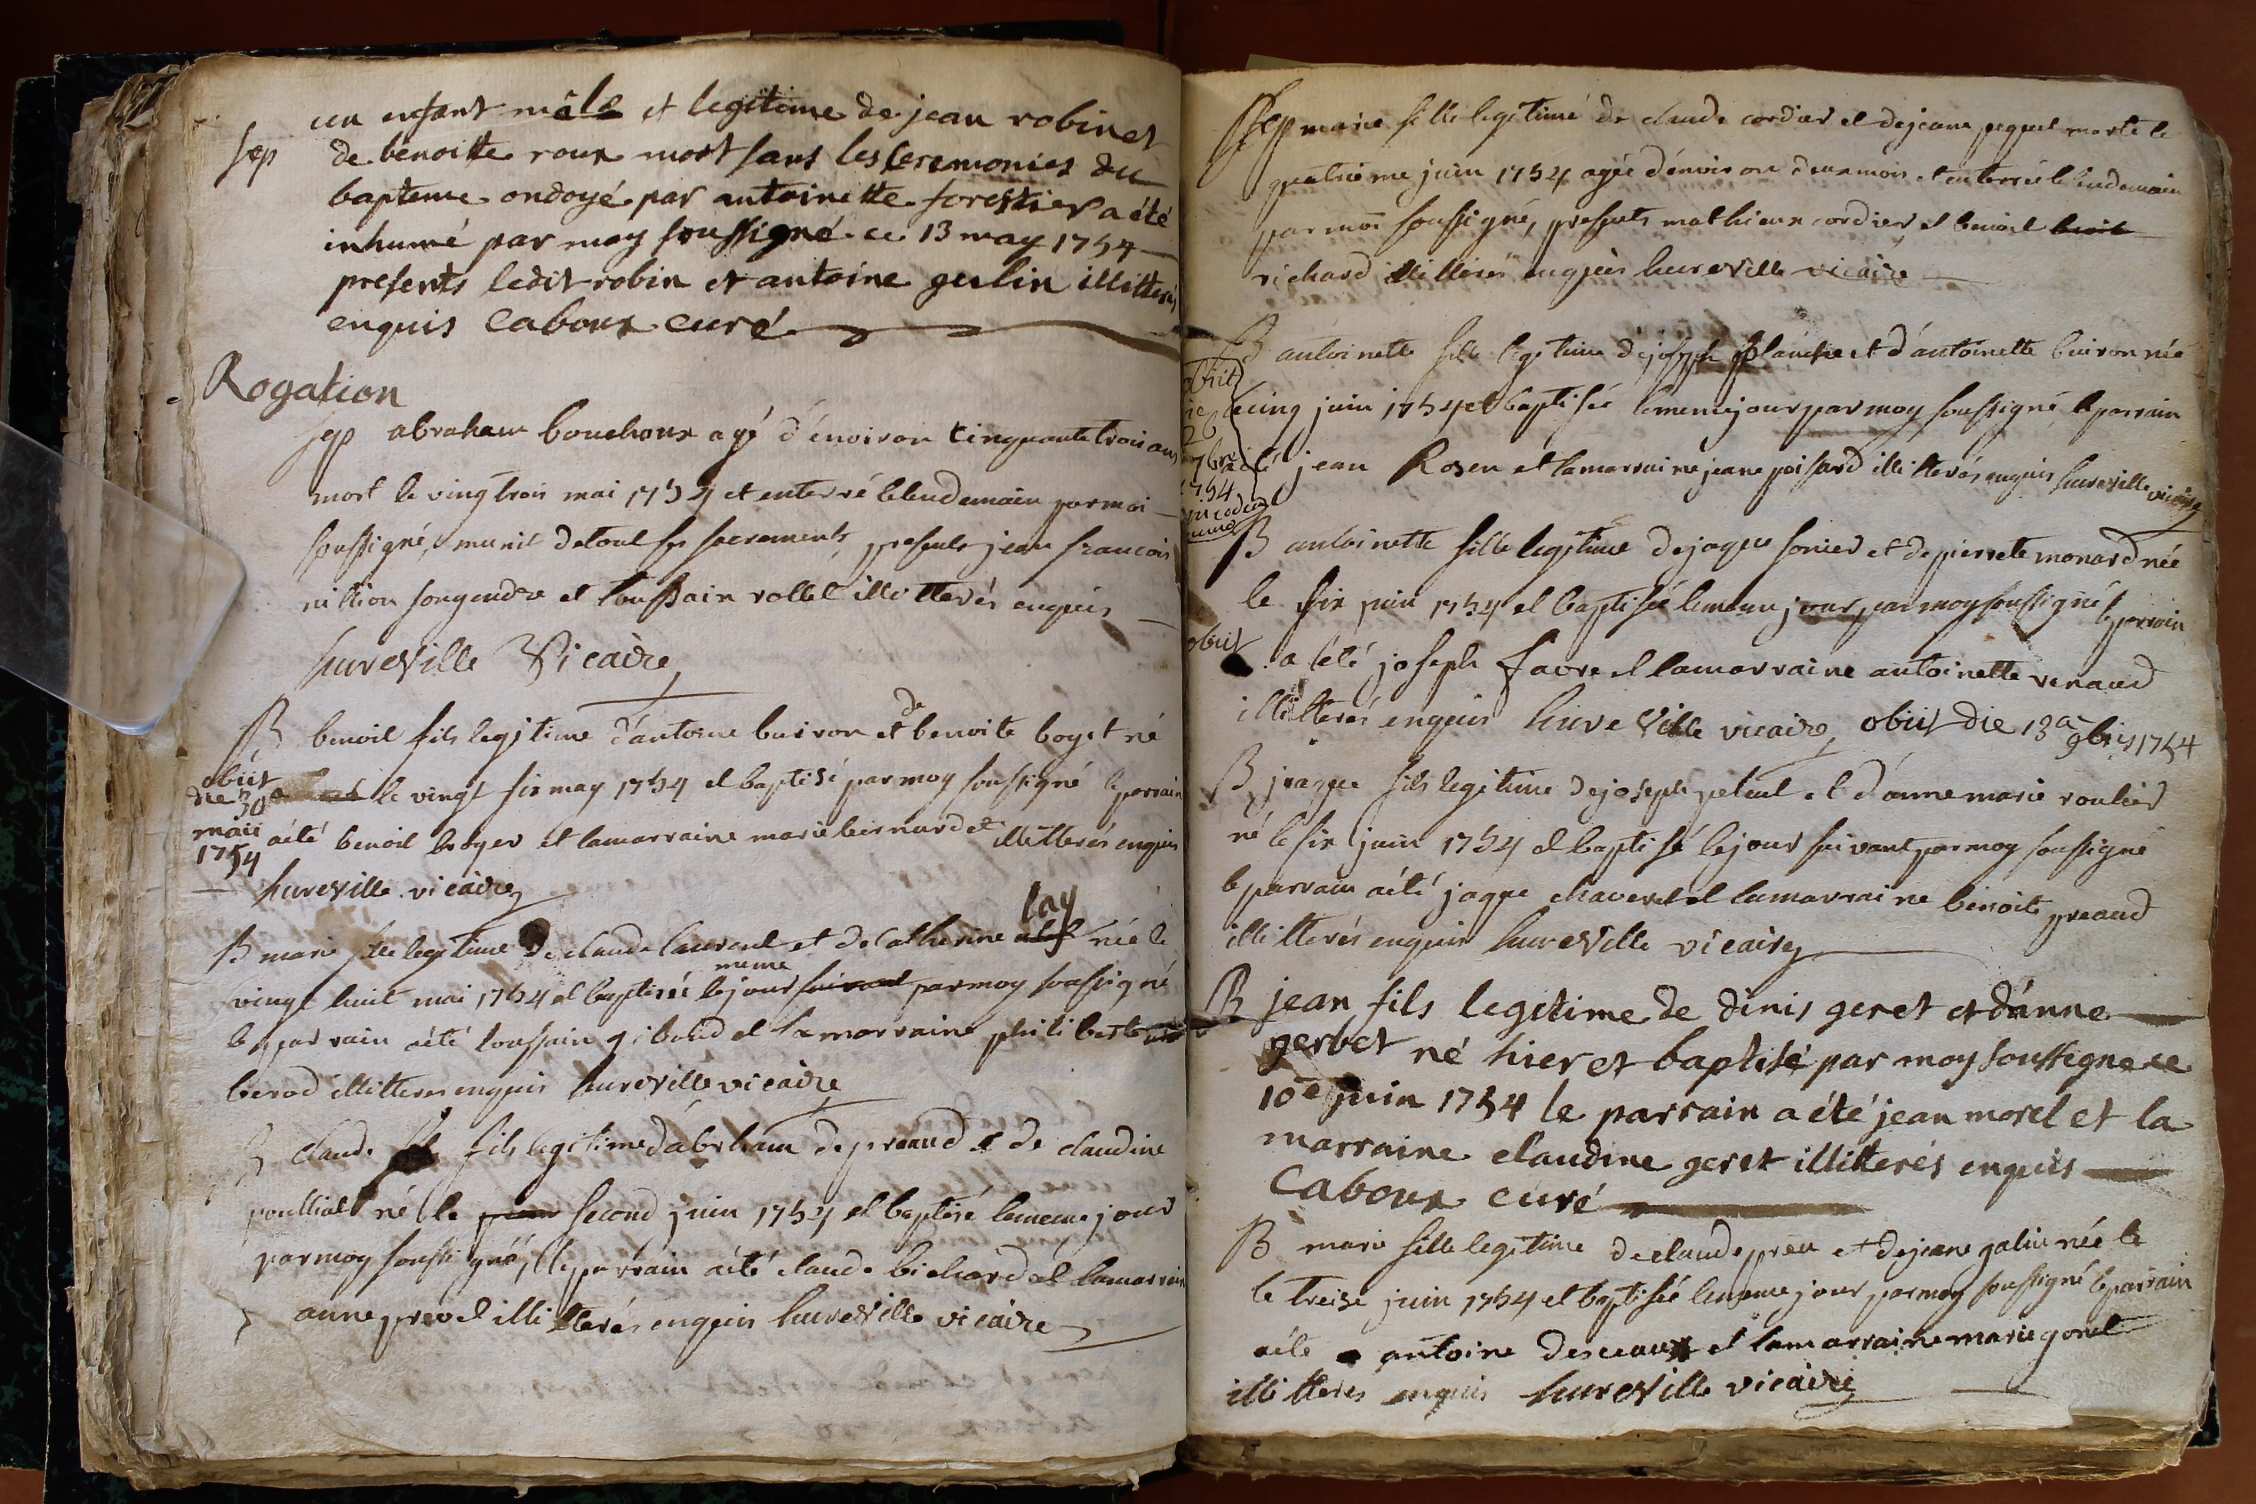 un enfant mâle et legitime de jean robin et
sep de benoitte roux mort sans les ceremonies du
bapteme ondoyé par antoinette forestier a été
inhumé par moy soussigné ce 13 may 1754
presents ledit robin et antoine gulin illitterés
enquis Caboux curé
Rogation
sep abraham bouchoux agé d'environ cinquante trois ans
mort le vingtrois mai 1754 et enterré le lendemain par moi
soussigné, munit de tout ses sacrements, presents jean francois
nittion son gendre et toussain rollet illitterés enquis
hureville Vicaire
B benoit fils legitime d'antoine buiron et de benoite boyet né
obiit die 30a maii 1754
le vingt six may 1754 et baptisé par moy soussigné le parrain
a été benoit broyer et la marraine marie bernardet illitterés enquis
hureville vicaire
B marie fille legitime de claude laurent et de catherine lay née le
vingt huit mai 1754 et baptisée le meme jour suivant par moy soussigné
le parrain a été toussain giboud et la marraine philiberte
berod illitteres enquis hureville vicaire
B claude fils legitime d'abraham depreaud et de claudine
poulliat né le second juin 1754 et baptisé le meme jour
par moy soussigné, le parrain a été claude bichard et la marraine
anne prevel illitterés enquis hureville vicaire
Sep marie fille legitime de claude cordier et de jeane pequet morte le
quatrieme juin 1754 agée d'environ deux mois et enterrée le lendemain
par moi soussigné, presents mathieux cordier, et benoit
richard illitterés enquis hureville vicaire
B antoinette fille legitime de joseph planche et d'antoinette buiron née
obiit die 26 7bris 1754
le cinq juin 1754 et baptisée le meme jour par moy soussigné le parrain
a été jean Rosen et la marraine jeane poisard illitterés enquis hureville vicaire
B antoinette fille legitime de jaque sonier et de pierrete monard née
le six juin 1754 et baptisée le meme jour par moy soussigné le parrain
obiit
a été joseph favre et la marraine antoinette renaud
illitterés enquis hureville vicaire obiit die 13a 9bris 1754
B jacque fils legitime de joseph peteul et d'anne marie roulier
né le six juin 1754 et baptisé le jour suivant par moy soussigné
le parrain a été jaque chaveret et la marraine benoite preaud
illitterés enquis hureville vicaire
B jean fils legitime de dinis geret et d'anne
gerbet né hier et baptisé par moy soussigné ce
10e juin 1754 le parrain a été jean morel et la
marraine claudine geret illitterés enquis
Caboux curé
B marie fille legitime de claude preu et de jeane galin née le
le treise juin 1754 et baptisée le meme jour par moy soussigné le parrain
a été antoine desceaux et la marraine marie gonet
illitteres enquis hureville vicaire